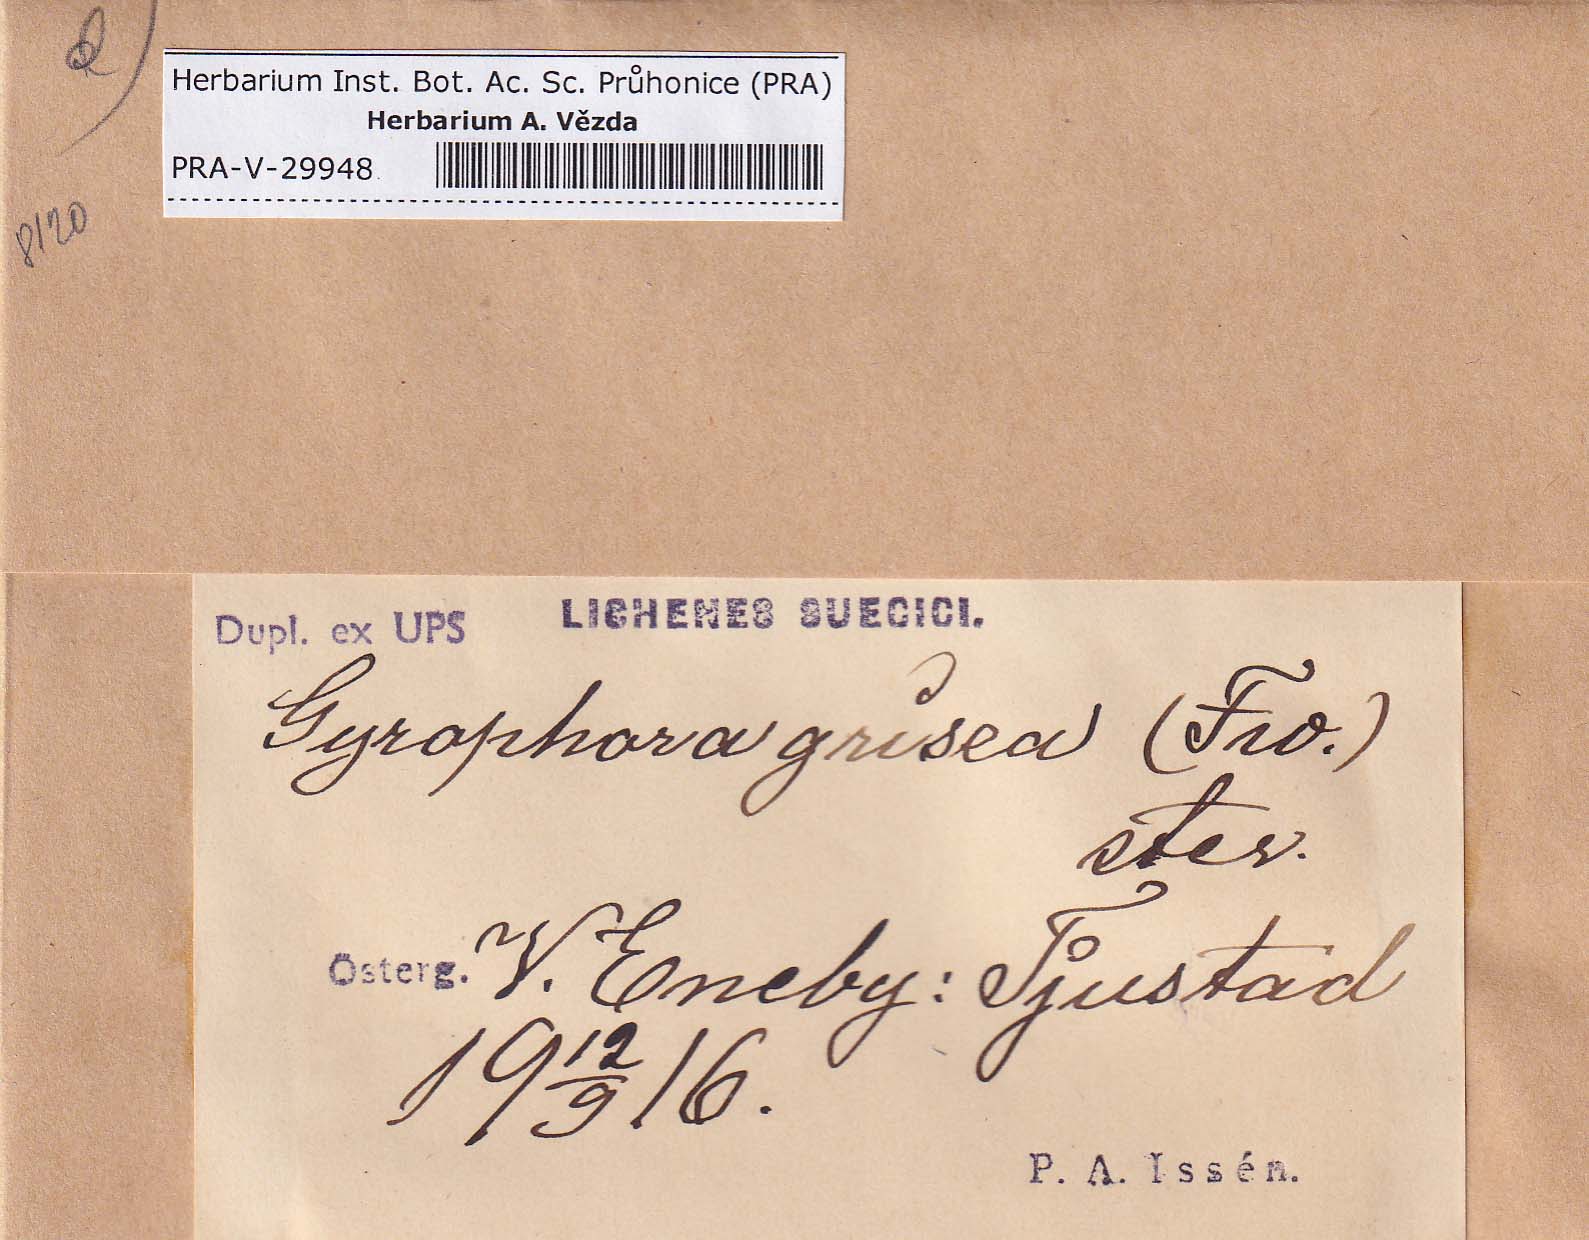 Herbarium Inst. Bot. Ac. Sc. Průhonice (PRA)
Herbarium A. Vězda
PRA-V-29948
8120
Dupl. ex UPS
LICHENES SUECICI.
Gyrophora grisea (Tw.)
ster.
Österg. V. Eneby: Tjustad
19 12/9 16.
P. A. Issén.